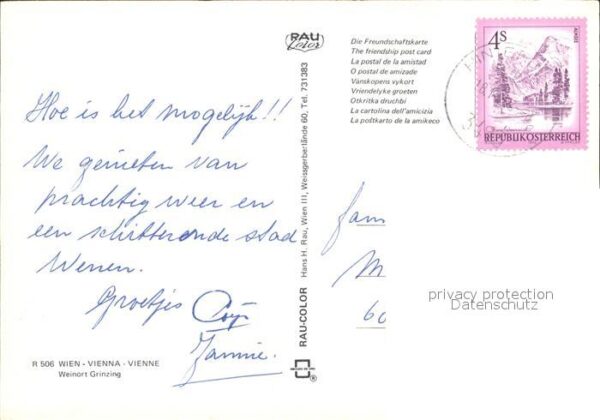 Hoe is het mogelijk!!
We genieten van
prachtig weer en
een schitterende stad
Wenen.
Groetjes Cor
Jannie.
R 506 WIEN - VIENNA - VIENNE
Weinort Grinzing
RAU
Color
RAU-COLOR Hans H. Rau, Wien III, Weissgerberlände 60, Tel. 731383
Die Freundschaftskarte
The friendship post card
La postal de la amistad
O postal de amizade
Vänskapens vykort
Vriendelyke groeten
Otkritka druchbi
La cartolina dell'amicizia
La poŝtkarto de la amikeco
4S
REPUBLIK ÖSTERREICH
fam
M
60
privacy protection
Datenschutz